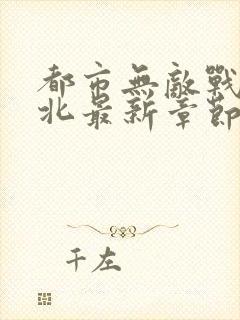 都市無敵戰
北最新章節
千左